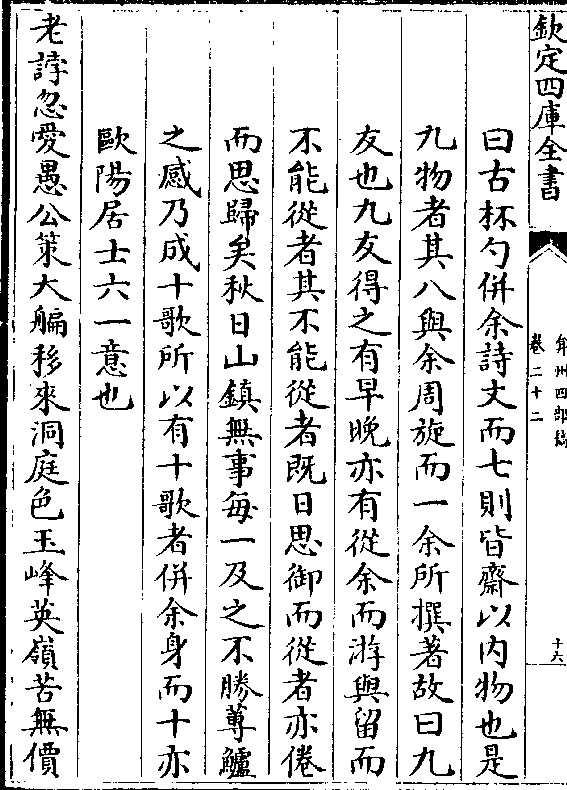 欽定四庫全書
弇州四部稿
卷二十二
十六
曰古杯勺併余詩文而七則皆齋以内物也是
九物者其八與余周旋而一余所撰著故曰九
友也九友得之有早晚亦有從余而游與留而
不能從者其不能從者既日思御而從者亦倦
而思歸矣秋日山鎮無事每一及之不勝蓴鱸
之感乃成十歌所以有十歌者併余身而十亦
歐陽居士六一意也
老誖忽愛愚公策大艑移來洞庭色玉峰英嶺苦無價